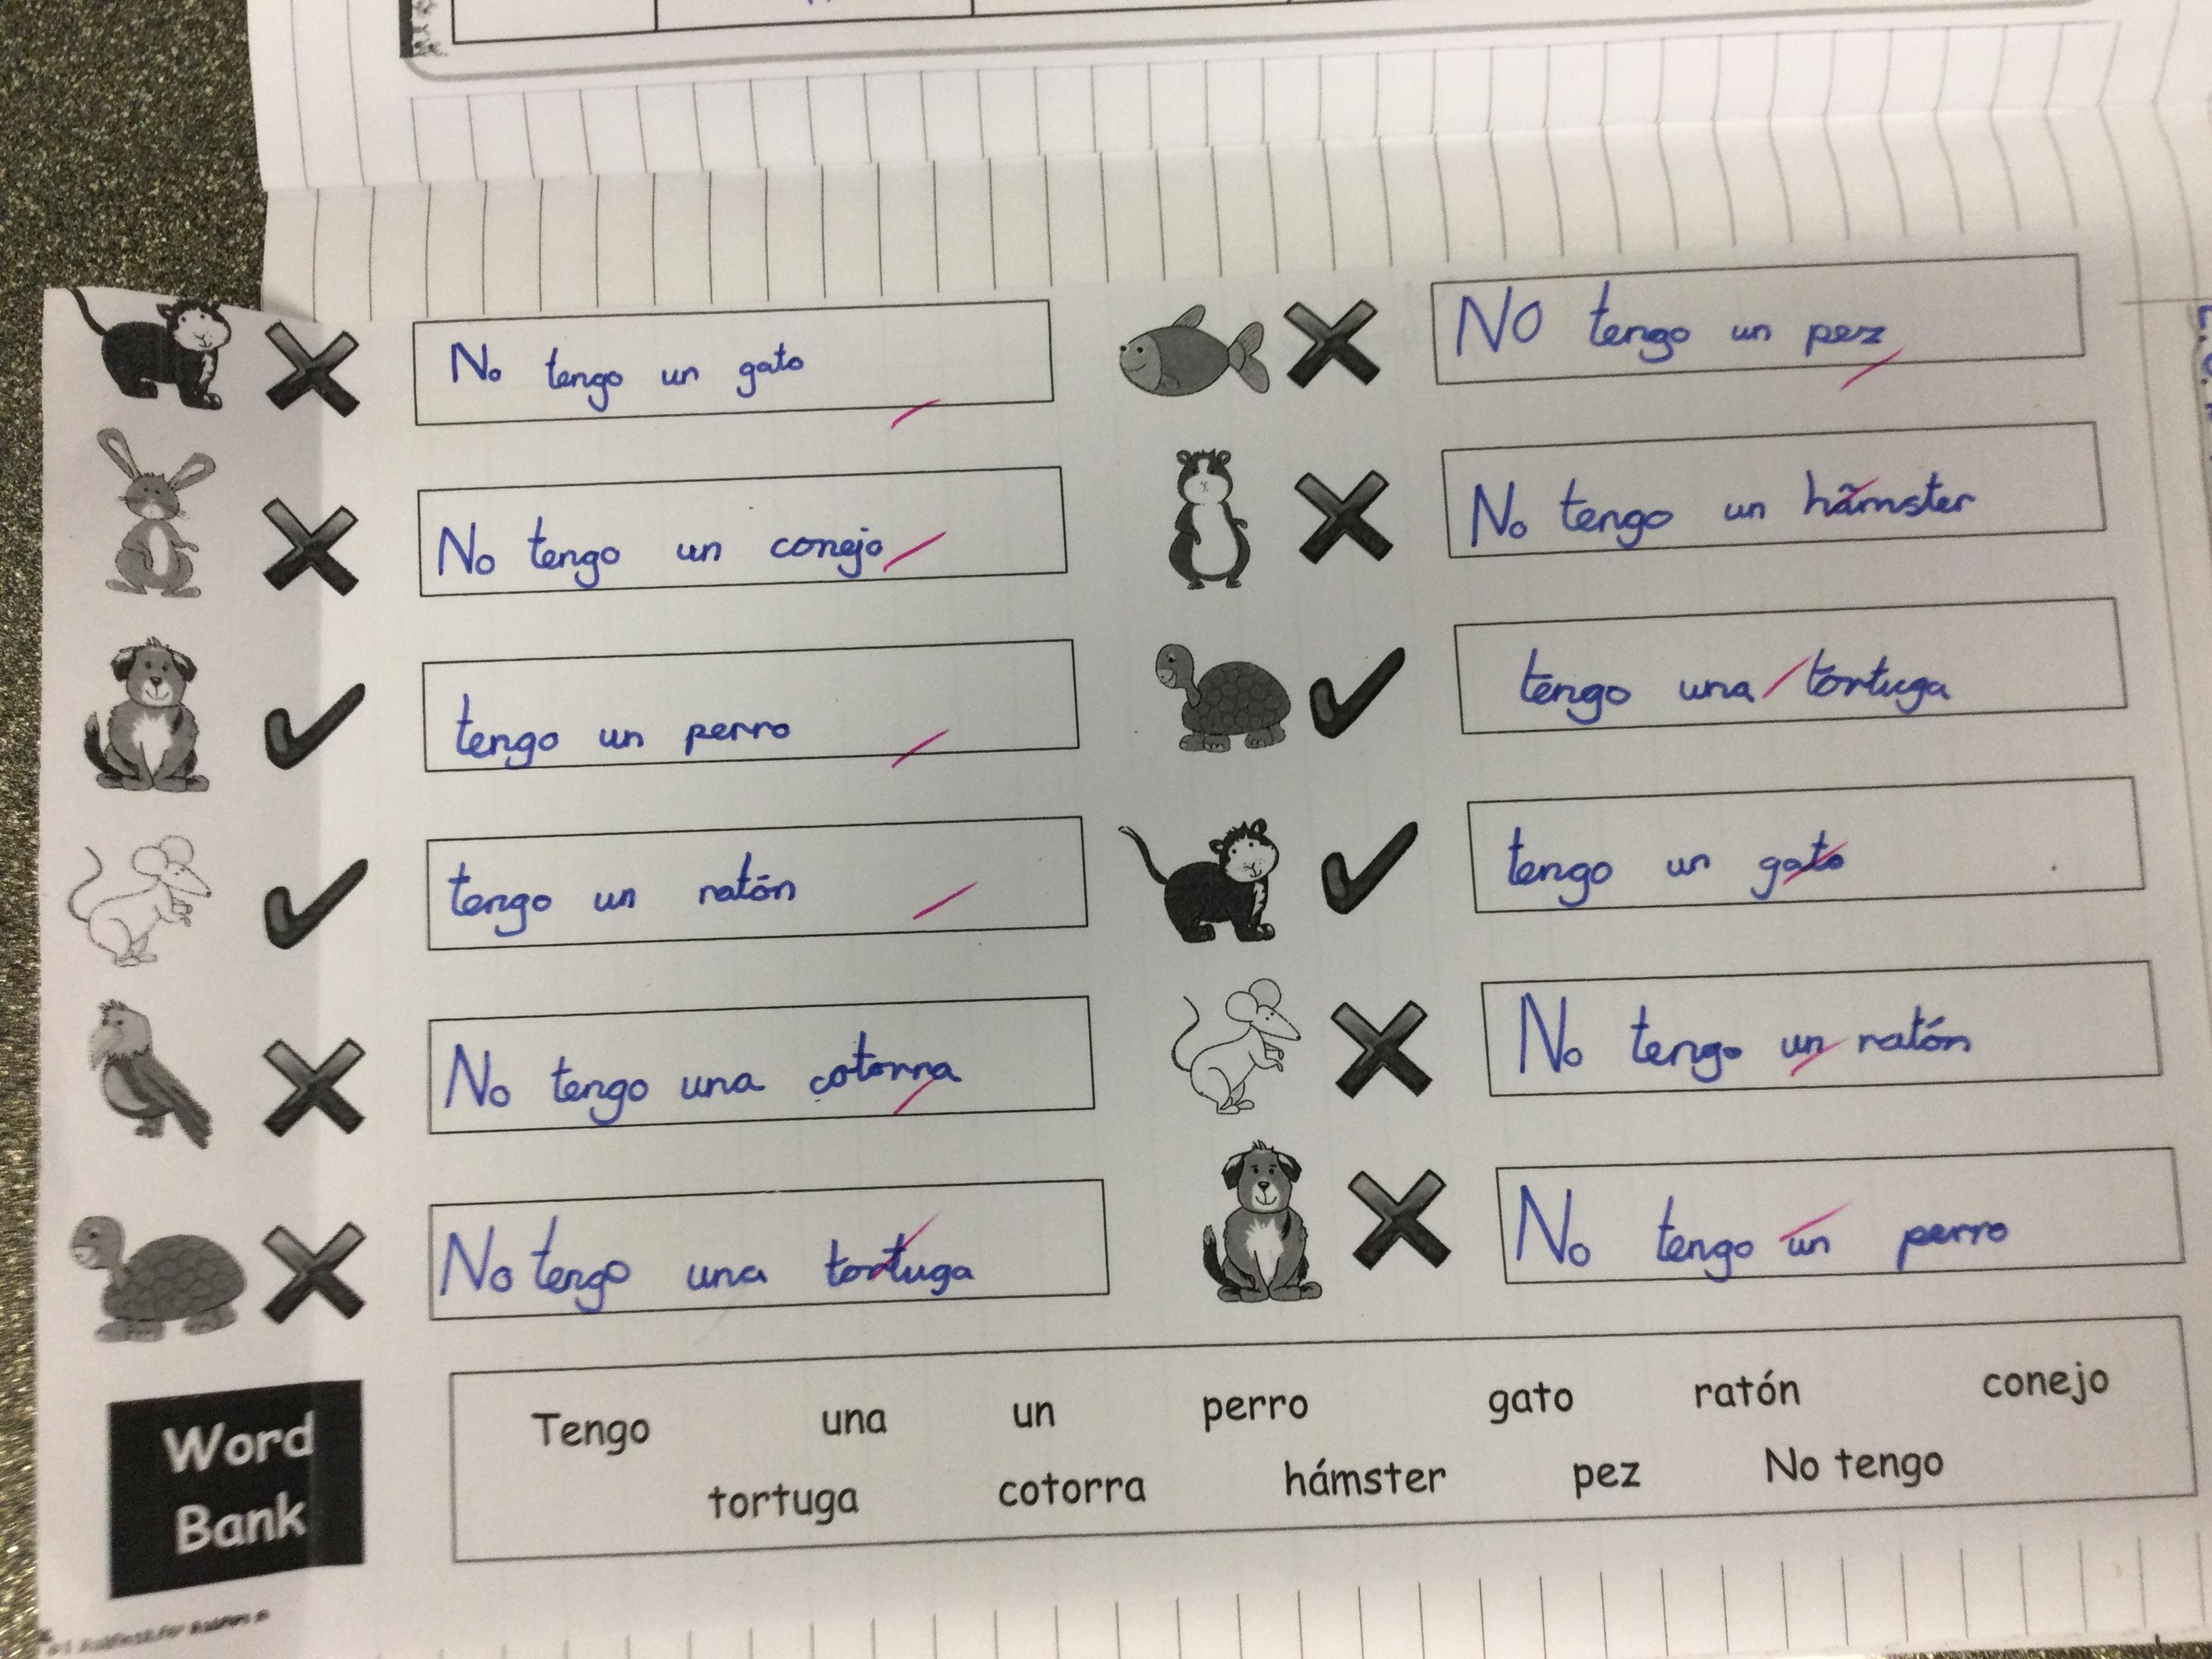 No tengo un gato
No tengo un conejo
tengo un perro
tengo un ratón
No tengo una cotorra
No tengo una tortuga
NO tengo un pez
No tengo un hámster
tengo una tortuga
tengo un gato
No tengo un ratón
No tengo un perro
Word
Bank
Tengo una un perro gato ratón conejo
tortuga cotorra hámster pez No tengo